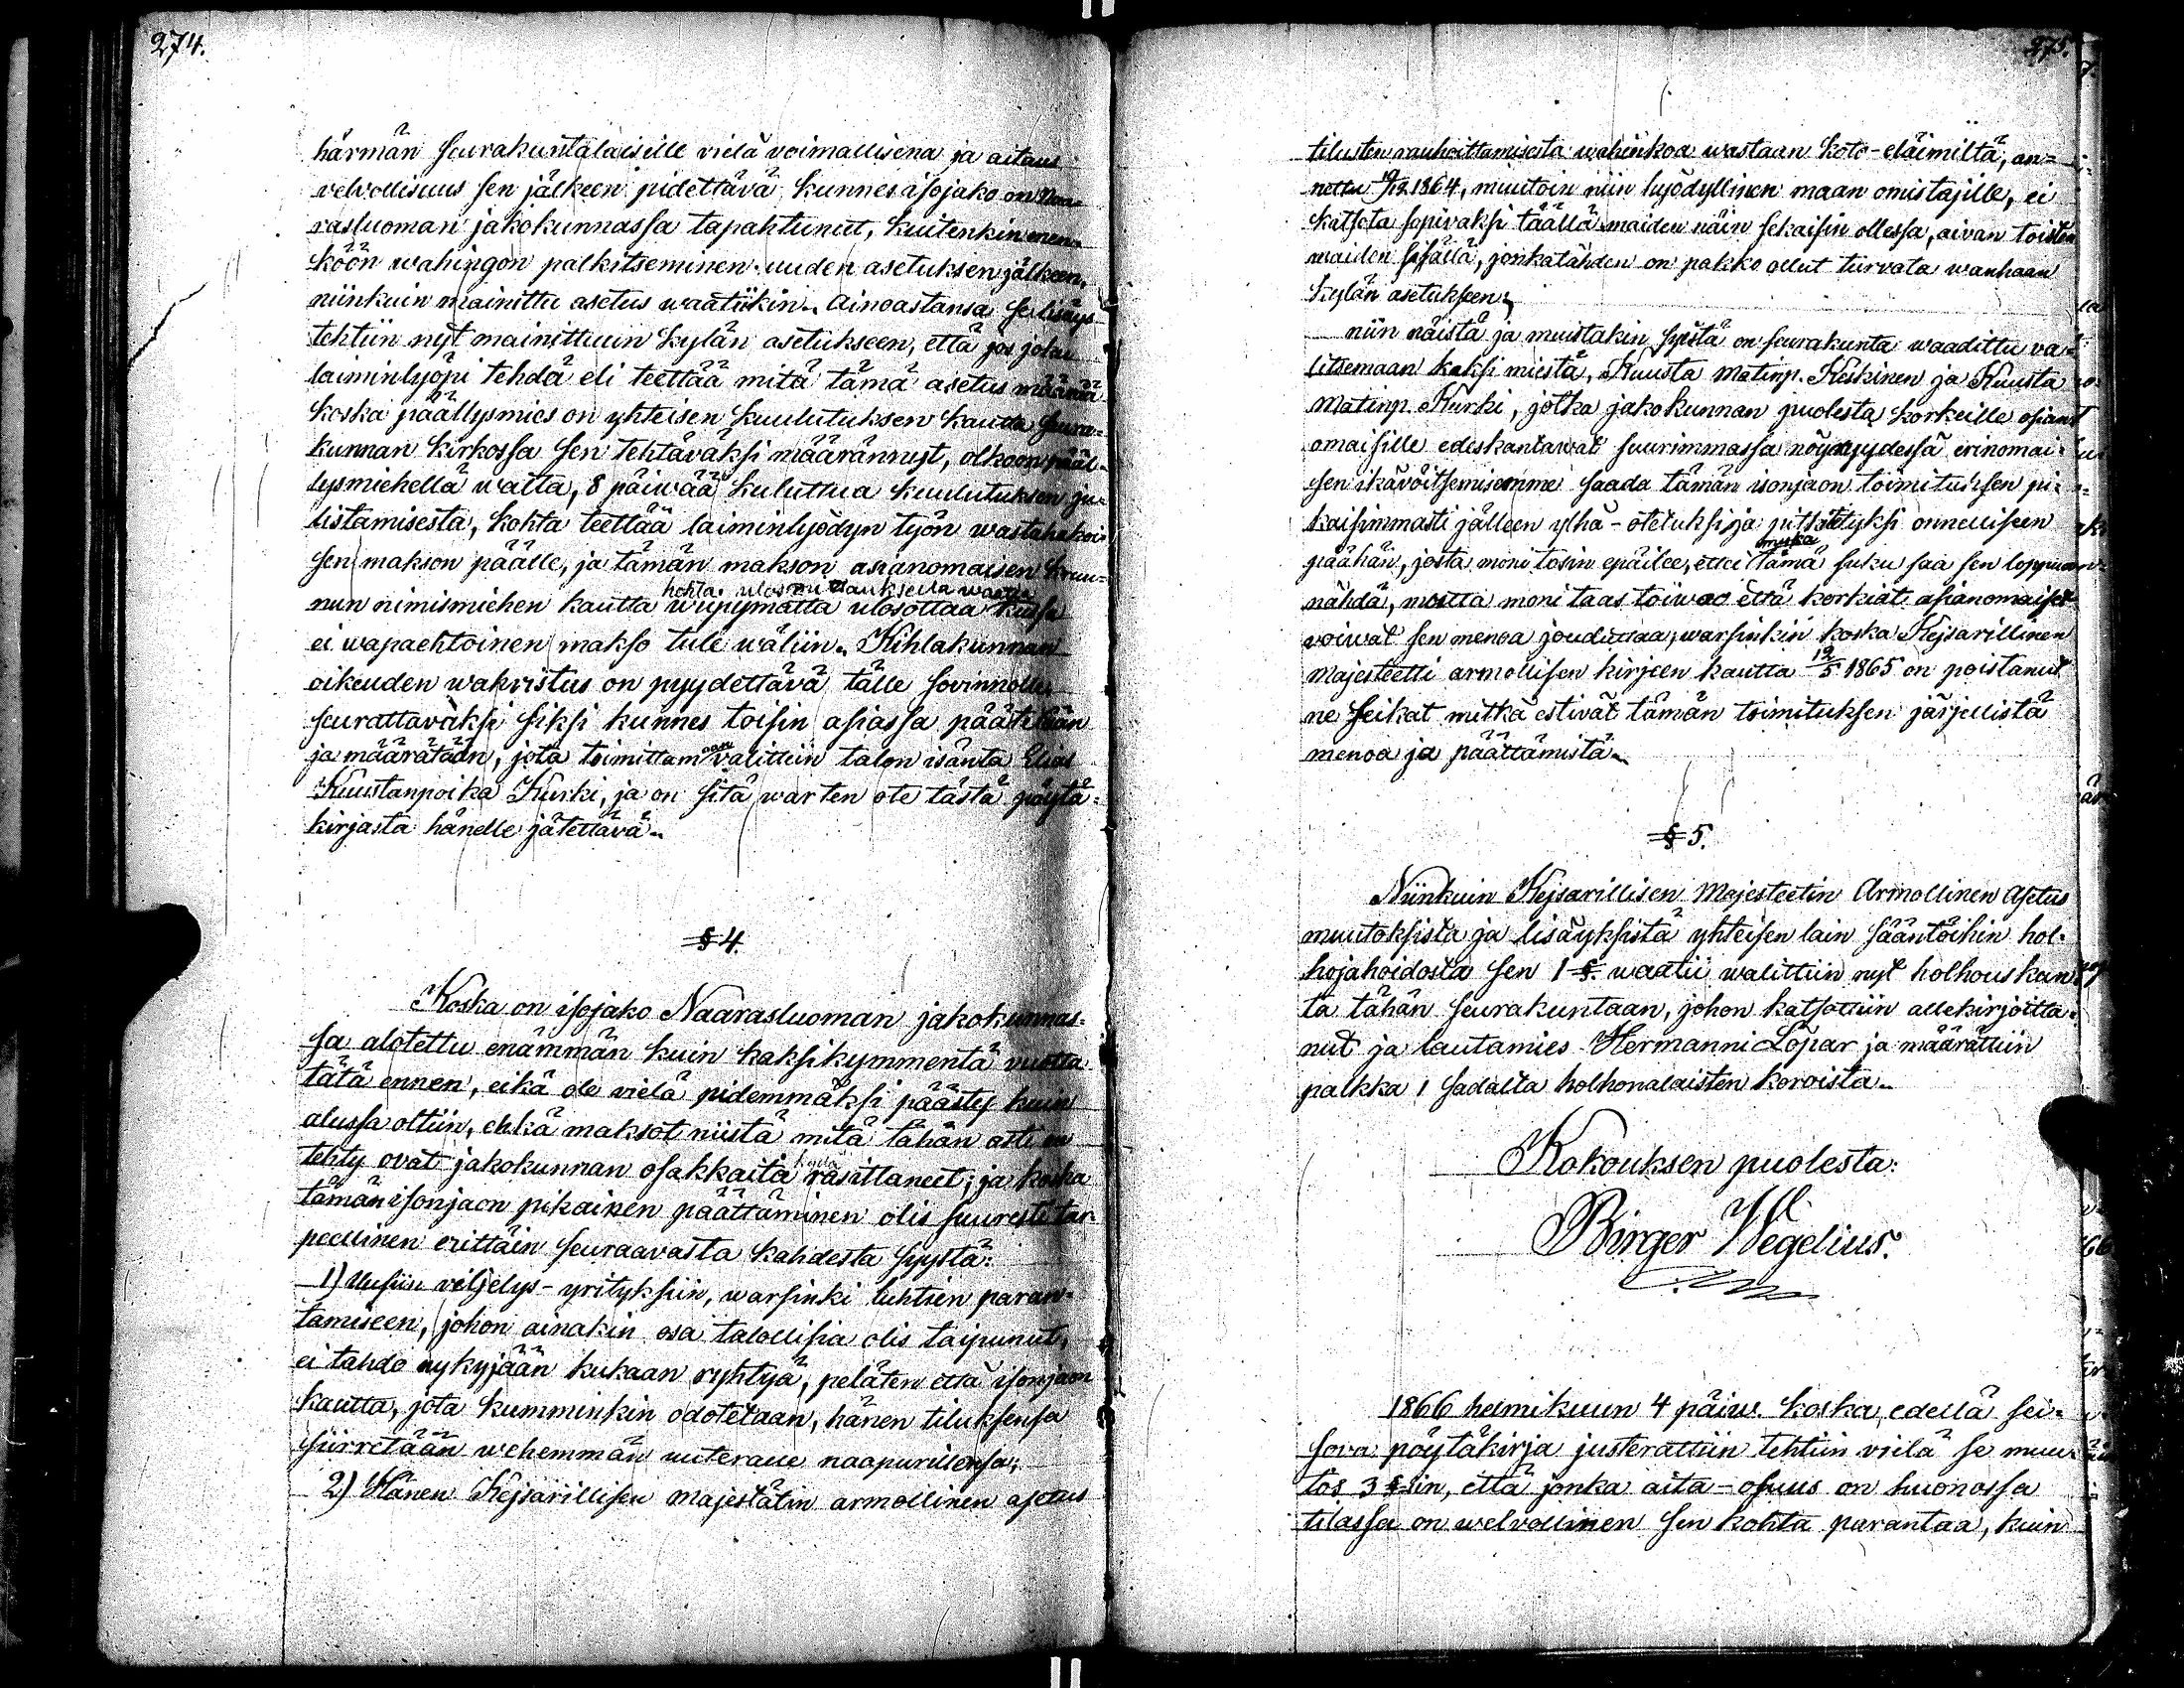 274.
härmän seurakuntalaisille vielä voimallisena ja aitaus
velvollisuus sen jälkeen pidettävä kunnes isojako on Naa-
rasluoman jakokunnassa tapahtunut, kuitenkin men-
köön wahingon palkitseminen uuden asetuksen jälkeen,
niinkuin mainittu asetus waatiikin. Ainoastansa se lisäys
tehtiin nyt mainittuun kylän asetukseen, että jos joku
laiminlyöpi tehdä eli teettää mitä tämä asetus määrää
koska päällysmies on yhteisen kuulutuksen kautta seura-
kunnan kirkossa sen tehtäväksi määrännyt, olkoon pääl-
lysmiehellä walta, 8 päiwää kuluttua kuulutuksen ju-
listamisesta, kohta teettää laiminlyödyn työn wastahakoi-
sen makson päälle, ja tämän makson asianomaisen kruu-
kohta ulosmittauksella
nun nimismiehen kautta wiipymättä ulosottaa kussa
ei wapaehtoinen makso tule wäliin. Kihlakunnan
oikeuden wahvistus on pyydettävä tälle sovinnolle
seurattavaksi siksi kunnes toisin asiassa päätetään
ja määrätään, jota toimittamaan valittiin talon isäntä Elias
Kuustanpoika Kurki, ja on sitä warten ote tästä pöytä-
kirjasta hänelle jätettävä.
§ 4.
Koska on isojako Naarasluoman jakokunnas-
sa alotettu enämmän kuin kaksikymmentä vuotta
tätä ennen, eikä ole vielä pidemmäksi päästy kuin
alussa oltiin, ehkä maksot niistä mitä tähän asti on
tehty ovat jakokunnan osakkaita rasittaneet; ja koska
tämän isonjaon pikainen päättäminen olis suuresti tar-
peellinen erittäin seuraavasta kahdesta syystä:
1) Uusiin viljelys-yrityksiin, warsinki luhtien paran-
tamiseen, johon ainakin osa talollisia olis taipunut,
ei tahdo nykyjään kukaan ryhtyä, peläten että isonjaon
kautta, jota kumminkin odotetaan, hänen tiluksensa
siirretään wehemmän uuteraue naapurillensa;
2) Hänen Kejsarillisen Majestätin armollinen asetus
275.
tilusten rauhoittamisesta wahinkoa wastaan koto-eläimiltä, an-
nettu 1864, muutoin niin hyödyllinen maan omistajille, ei
katsota sopivaksi täällä maiden näin sekaisin ollessa, aivan toisten
maiden sisällä, jonkatähden on pakko ollut turvata wanhaan
kylän asetukseen;
niin näistä ja muistakin syistä on seurakunta waadittu va-
litsemaan kaksi miestä, Kuusta Matinp. Keskinen ja Kuusta
Matinp. Kurki, jotka jakokunnan puolesta korkeille asian-
omaisille edeskantawat suurimmassa nöyryydessä erinomai-
sen ikävöitsemisemme saada tämän isonjaon toimituksen pi-
kaisimmasti jälleen ylhä-otetuksi ja pitkitetyksi onnelliseen
päähän, josta moni tosin epäilee, ettei tämä suku saa sen loppua
nähdä, mutta moni taas toiwoo että korkiat asianomaiset
voiwat sen menoa jouduttaa, warsinkin koska Kejsarillinen
Majesteetti armollisen kirjeen kautta 12/5 1865 on poistanut
ne seikat mitkä estivät tämän toimituksen järjellistä
menoa ja päättämistä.
§ 5.
Niinkuin Kejsarillisen Majesteetin Armollinen Asetus
muutoksista ja lisäyksistä yhteisen lain sääntöihin hol-
hojahoidosta sen 1 §. waatii walittiin nyt holhouskun-
ta tähän seurakuntaan, johon katsottiin allekirjoitta-
nut ja lautamies Hermanni Lopar ja määrättiin
palkka 1 sadalta holhonalaisten koroista.
Kokouksen puolesta:
Birger Wegelius.
1866 helmikuun 4 päiw. koska edellä sei-
sova pöytäkirja justerattiin tehtiin vielä se muu-
tos 3 §sin, että jonka aita-osuus on huonossa
tilassa on welvollinen sen kohta parantaa, kuin